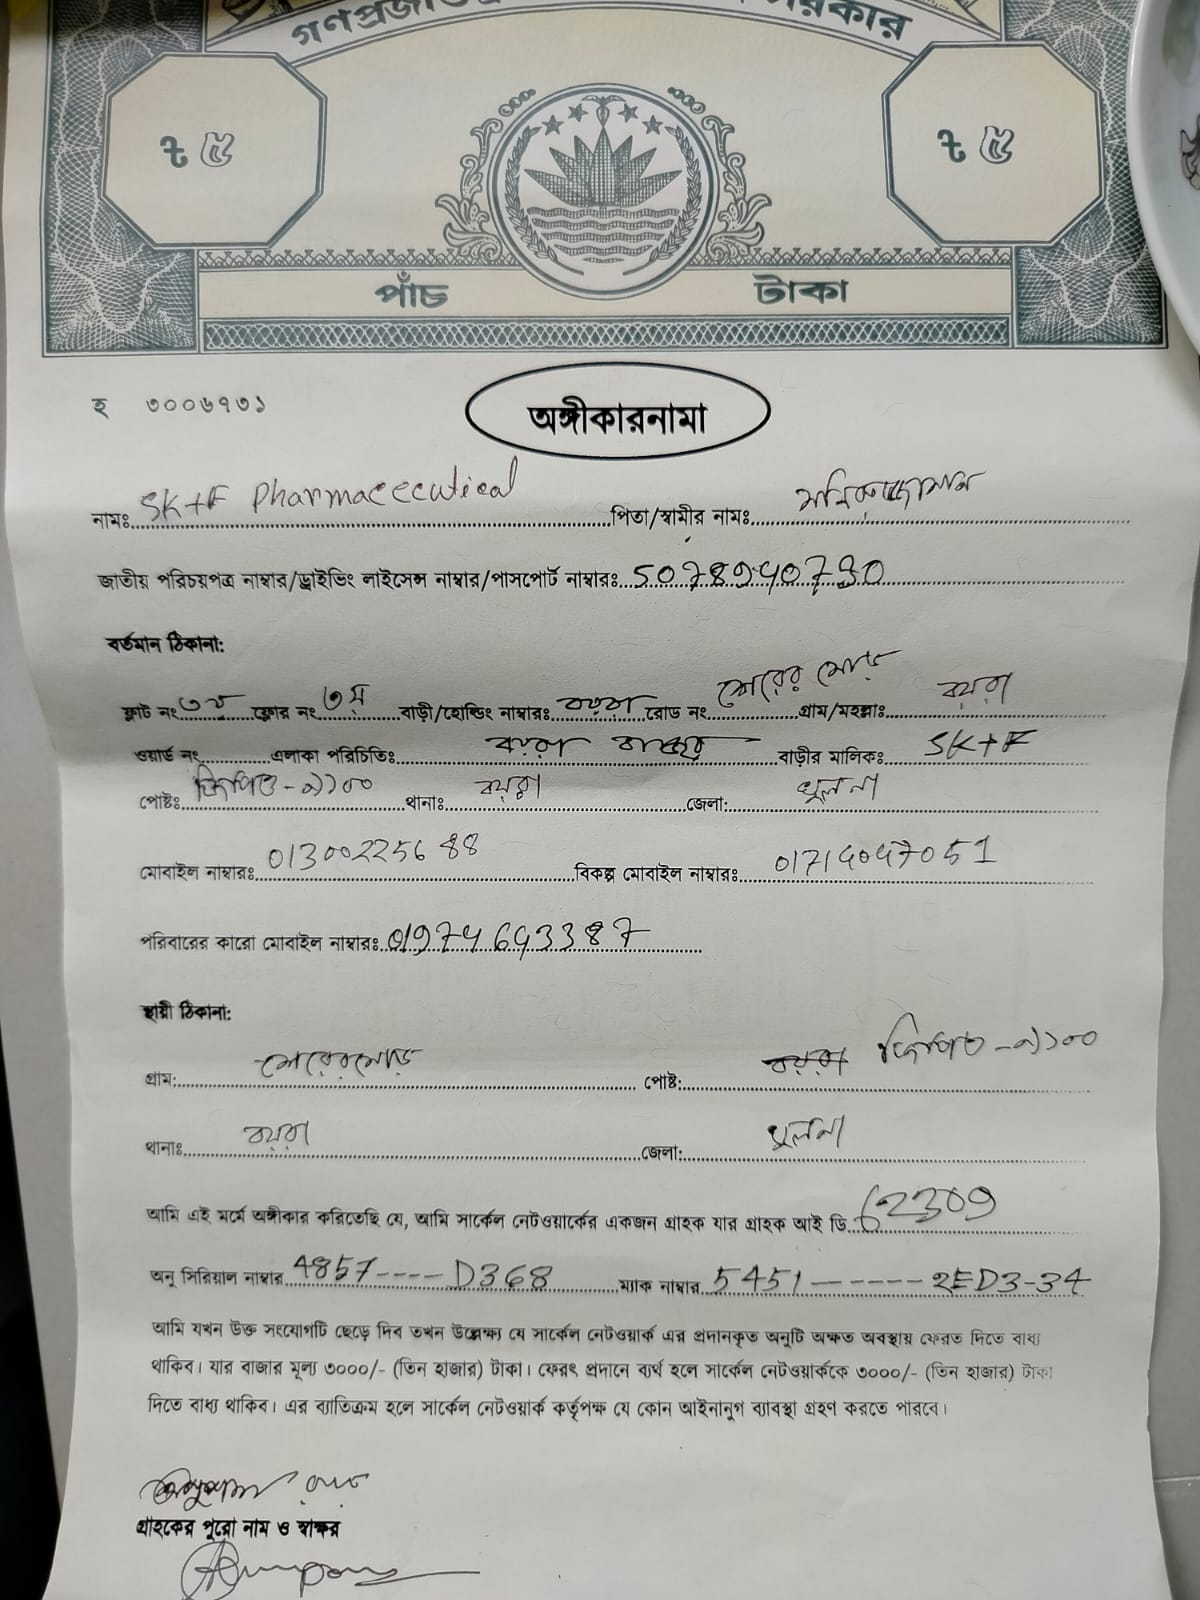 গণপ্রজাত
সরকার
৳ ৫
৳ ৫
পাঁচ টাকা
হ ৩০০৬৭৩১
অঙ্গীকারনামা
নামঃ SK+F Pharmacecutical পিতা/স্বামীর নামঃ মনিরুজ্জোমান
জাতীয় পরিচয়পত্র নাম্বার/ড্রাইভিং লাইসেন্স নাম্বার/পাসপোর্ট নাম্বারঃ
বর্তমান ঠিকানা:
ফ্লাট নং ফ্লোর নং ৩য় বাড়ী/হোল্ডিং নাম্বারঃ বয়রা রোড নং শেরের মোড় গ্রাম/মহল্লাঃ বয়রা
ওয়ার্ড নং এলাকা পরিচিতিঃ বয়রা বাজার বাড়ীর মালিকঃ SK+F
পোষ্টঃ জিপিও-৯১০০ থানাঃ বয়রা জেলা: খুলনা
মোবাইল নাম্বারঃ 01300225688 বিকল্প মোবাইল নাম্বারঃ
পরিবারের কারো মোবাইল নাম্বারঃ
স্থায়ী ঠিকানা:
গ্রাম: শেরেরমোড় পোষ্ট: বয়রা জিপিও-৯১০০
থানাঃ বয়রা জেলা: খুলনা
আমি এই মর্মে অঙ্গীকার করিতেছি যে, আমি সার্কেল নেটওয়ার্কের একজন গ্রাহক যার গ্রাহক আই ডি. 62309
অনু সিরিয়াল নাম্বার 4857---- D368 ম্যাক নাম্বার 5451------2ED3-34
আমি যখন উক্ত সংযোগটি ছেড়ে দিব তখন উল্লেক্ষ্য যে সার্কেল নেটওয়ার্ক এর প্রদানকৃত অনুটি অক্ষত অবস্থায় ফেরত দিতে বাধ্য
থাকিব। যার বাজার মূল্য ৩০০০/- (তিন হাজার) টাকা। ফেরৎ প্রদানে ব্যর্থ হলে সার্কেল নেটওয়ার্ককে ৩০০০/- (তিন হাজার) টাকা
দিতে বাধ্য থাকিব। এর ব্যাতিক্রম হলে সার্কেল নেটওয়ার্ক কর্তৃপক্ষ যে কোন আইনানুগ ব্যাবস্থা গ্রহণ করতে পারবে।
গ্রাহকের পুরো নাম ও স্বাক্ষর